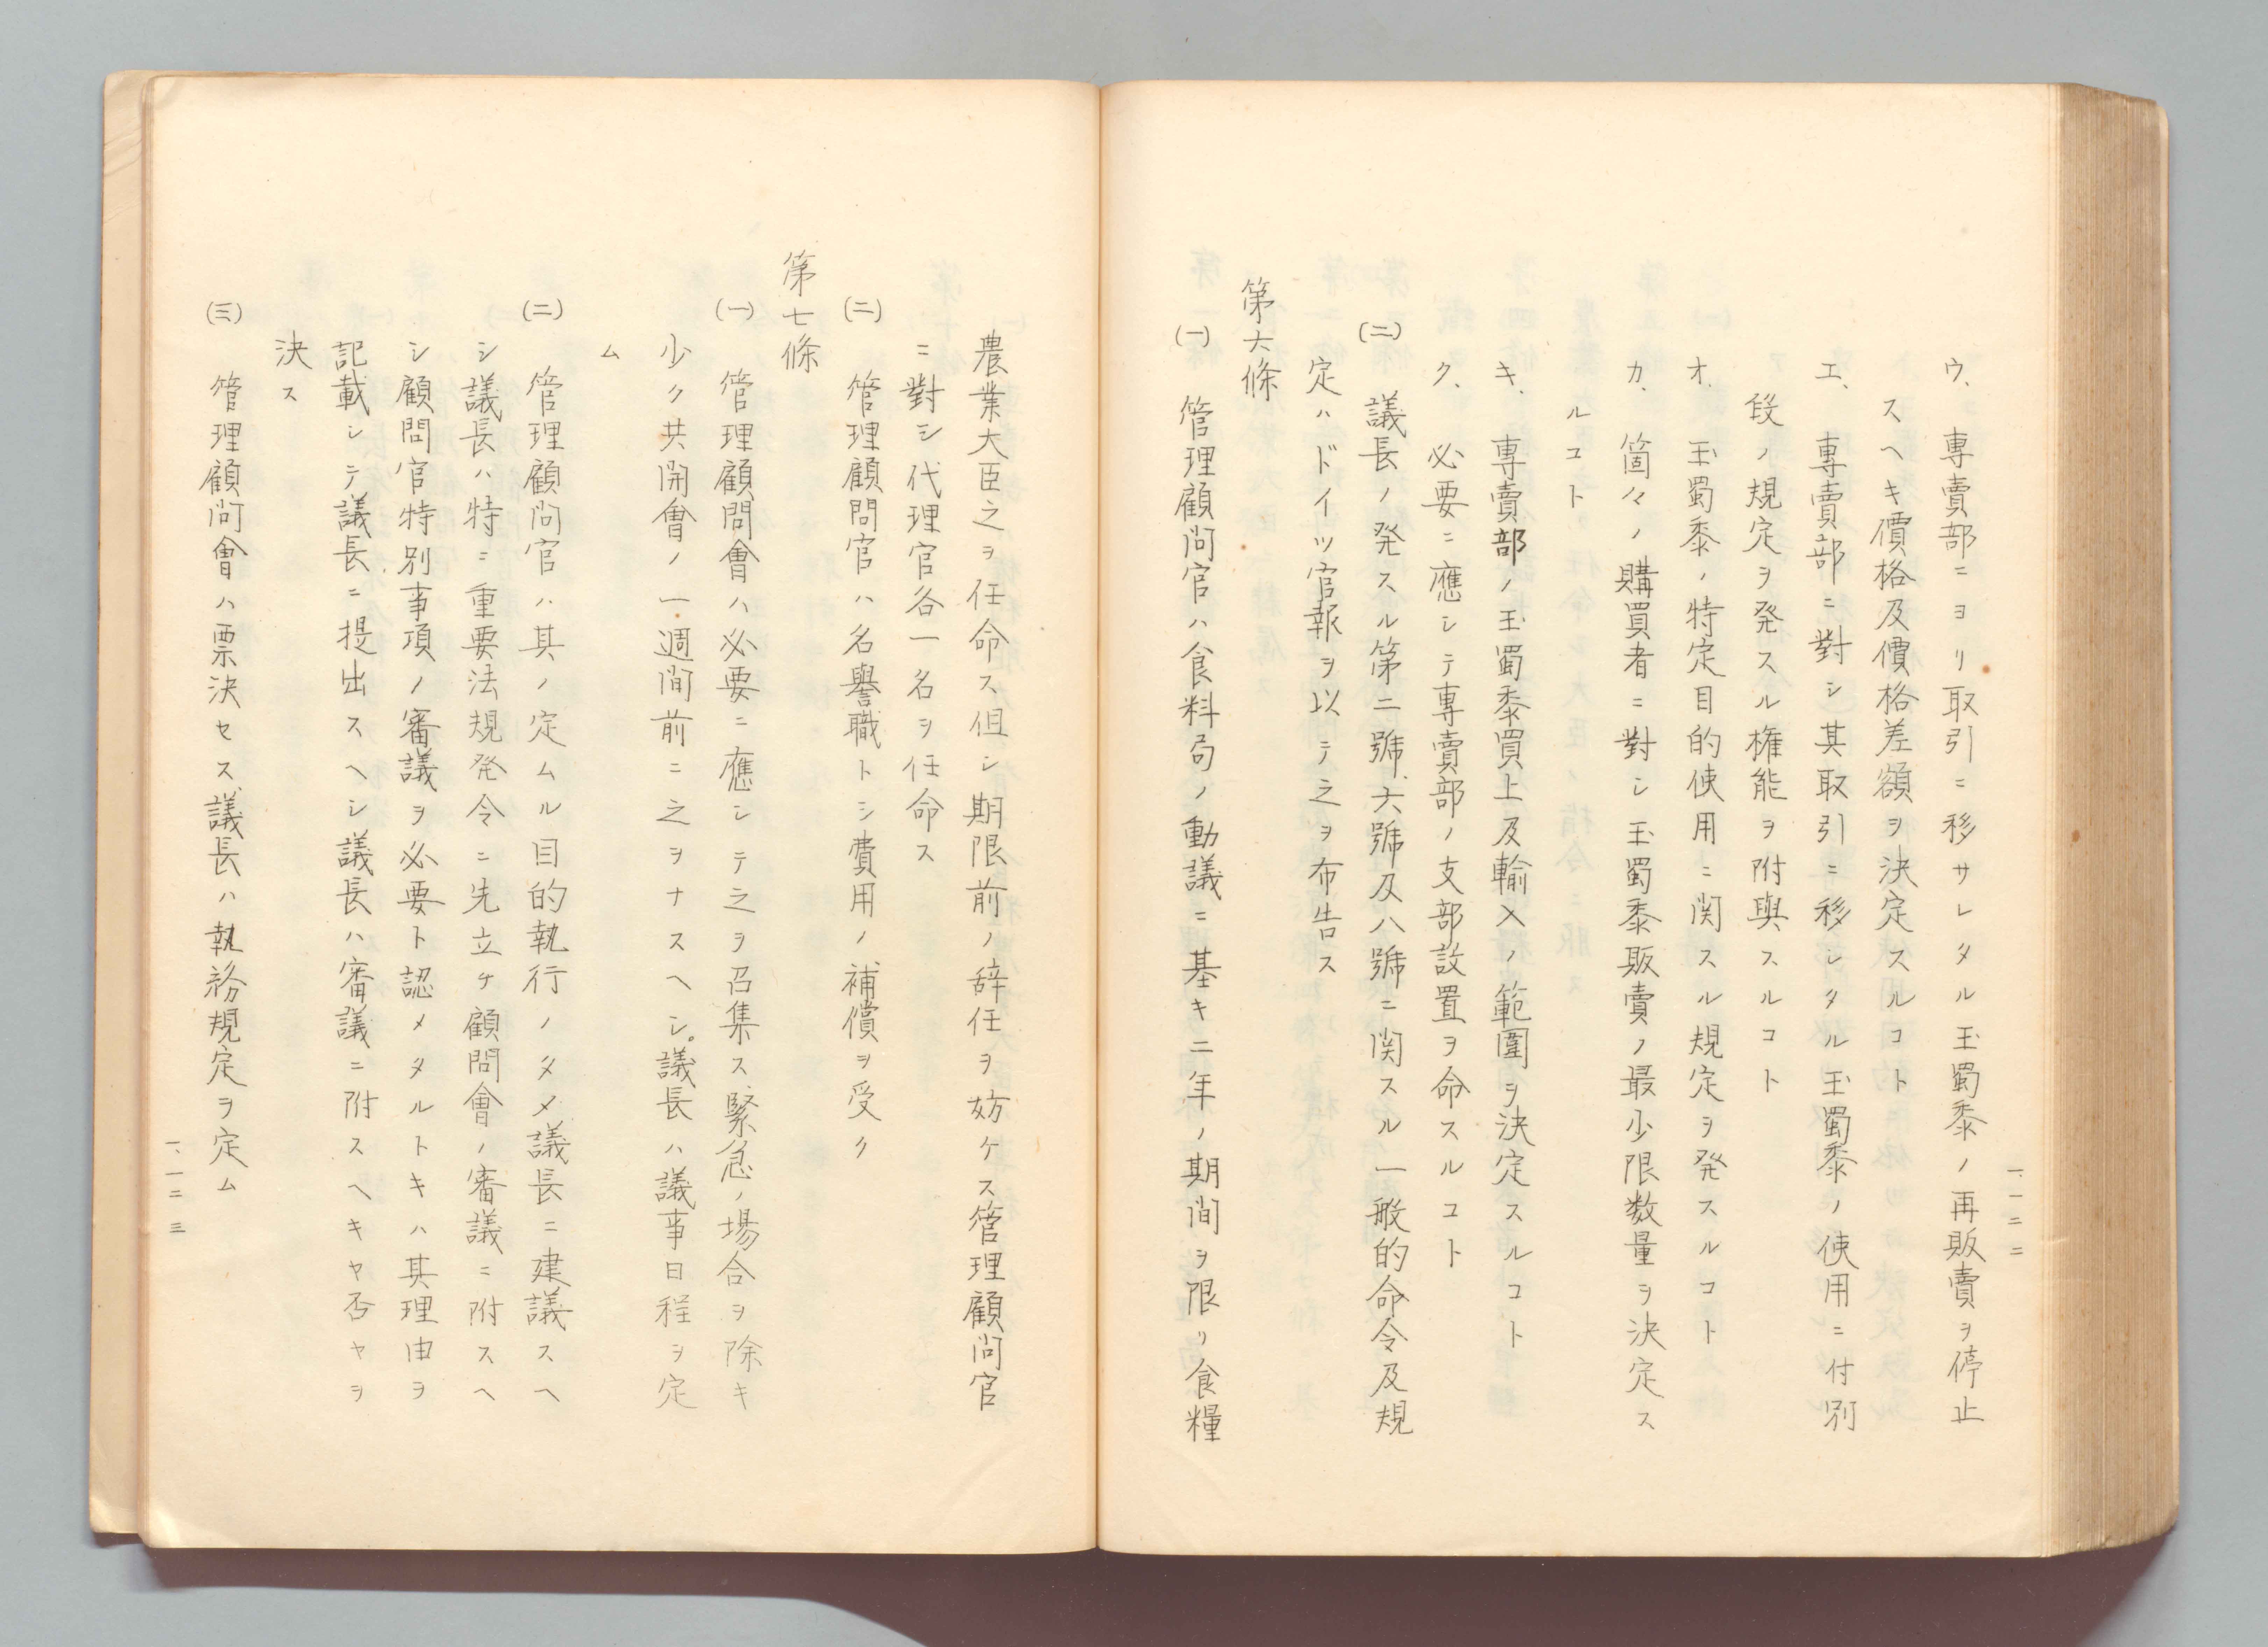 一、一二二
ウ、専賣部ニヨリ取引ニ移サレタル玉蜀黍ノ再販賣ヲ停止
スヘキ價格及價格差額ヲ決定スルコト
エ、専賣部ニ對シ其取引ニ移シタル玉蜀黍ノ使用ニ付別
段ノ規定ヲ発スル権能ヲ附與スルコト
オ、玉蜀黍ノ特定目的使用ニ関スル規定ヲ発スルコト
カ、箇々ノ購買者ニ對シ玉蜀黍販賣ノ最少限数量ヲ決定ス
ルコト
キ、専賣部ノ玉蜀黍買上及輸入ノ範圍ヲ決定スルコト
ク、必要ニ應シテ専賣部ノ支部設置ヲ命スルコト
(二) 議長ノ発スル第二號、六號及八號ニ関スル一般的命令及規
定ハドイツ官報ヲ以テ之ヲ布告ス
第六條
(一) 管理顧問官ハ食料局ノ動議ニ基キ二年ノ期間ヲ限リ食糧
農業大臣之ヲ任命ス但シ期限前ノ辞任ヲ妨ケス管理顧問官
ニ對シ代理官各一名ヲ任命ス
(二) 管理顧問官ハ名譽職トシ費用ノ補償ヲ受ク
第七條
(一) 管理顧問會ハ必要ニ應シテ之ヲ召集ス緊急ノ場合ヲ除キ
少ク共開會ノ一週間前ニ之ヲナスヘシ。議長ハ議事日程ヲ定
ム
(二) 管理顧問官ハ其ノ定ムル目的執行ノタメ議長ニ建議スヘ
シ議長ハ特ニ重要法規発令ニ先立チ顧問會ノ審議ニ附スヘ
シ顧問官特別事項ノ審議ヲ必要ト認メタルトキハ其理由ヲ
記載シテ議長ニ提出スヘシ議長ハ審議ニ附スヘキヤ否ヤヲ
決ス
(三) 管理顧問會ハ票決セス、議長ハ執務規定ヲ定ム
一、一二三